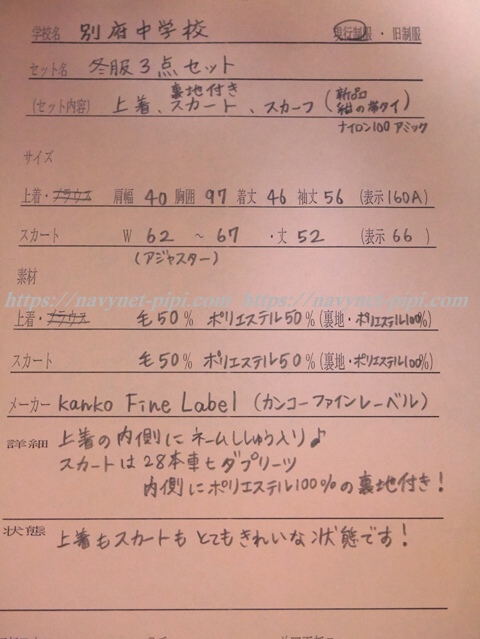 学校名 別府中学校 現行制服・旧制服
セット名 冬服3点セット
裏地付き
(セット内容) 上着、スカート、スカーフ(新品 紺の常タイ)
ナイロン100アミック
サイズ
上着・ブラウス 肩幅 40 胸囲 97 着丈 46 袖丈 56 (表示160A)
スカート W 62 ～ 67 ・丈 52 (表示 66 )
(アジャスター)
素材
https://navynet-pipi.com/ https://navynet-pipi.com/
上着・ブラウス 毛50% ポリエステル50%(裏地・ポリエステル100%)
スカート 毛50% ポリエステル50%(裏地・ポリエステル100%)
メーカー Kanko Fine Label (カンコーファインレーベル)
詳細 上着の内側にネームししゅう入り♪
スカートは28本車ヒダプリーツ
内側にポリエステル100%の裏地付き!
状態 上着もスカートもとてもきれいな状態です!